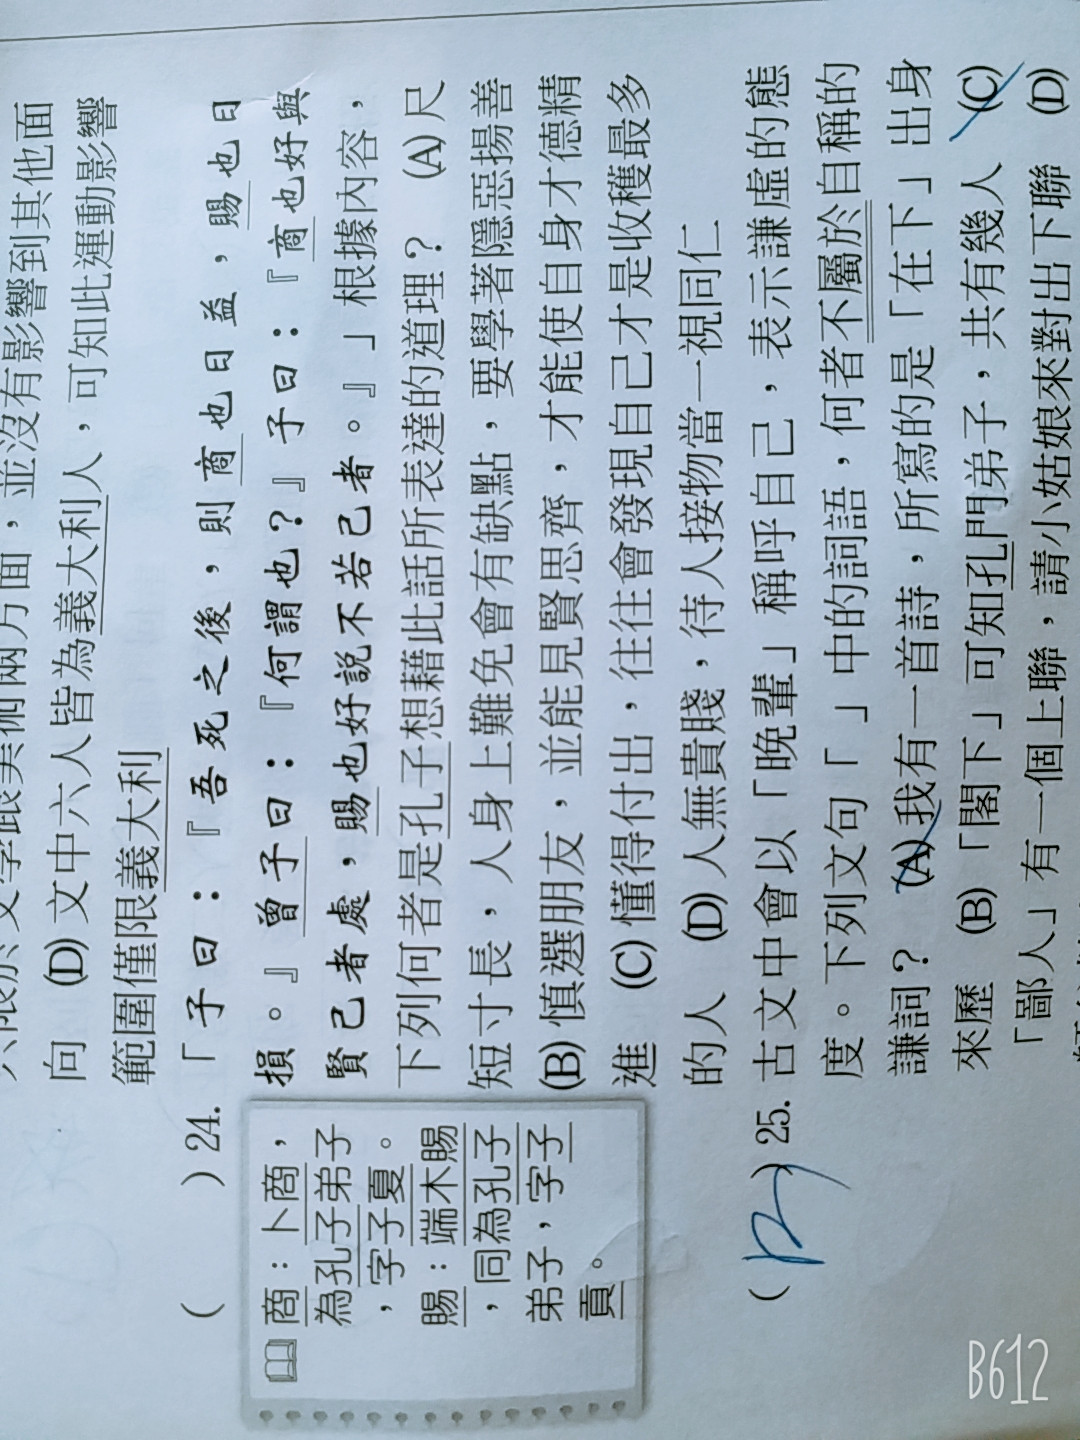 只限於文學跟美術兩方面，並沒有影響到其他面
向　(D)文中六人皆為義大利人，可知此運動影響
範圍僅限義大利
(　　)24.「子曰：『吾死之後，則商也日益，賜也日
損。』曾子曰：『何謂也？』子曰：『商也好與
賢己者處，賜也好說不若己者。』」根據內容，
下列何者是孔子想藉此話所表達的道理？　(A)尺
短寸長，人身上難免會有缺點，要學著隱惡揚善
(B)慎選朋友，並能見賢思齊，才能使自身才德精
進　(C)懂得付出，往往會發現自己才是收穫最多
的人　(D)人無貴賤，待人接物當一視同仁
商：卜商，
為孔子弟子
，字子夏。
賜：端木賜
，同為孔子
弟子，字子
貢。
(B)25.古文中會以「晚輩」稱呼自己，表示謙虛的態
度。下列文句「　」中的詞語，何者不屬於自稱的
謙詞？　(A)我有一首詩，所寫的是「在下」出身
來歷　(B)「閣下」可知孔門弟子，共有幾人　(C)
「鄙人」有一個上聯，請小姑娘來對出下聯　(D)
B612